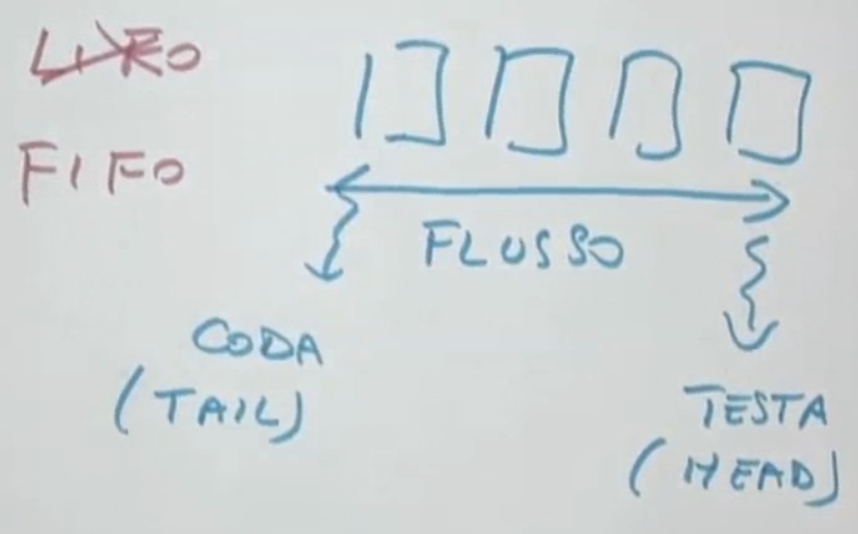 LIFO
FIFO
FLUSSO
CODA
(TAIL)
TESTA
(HEAD)